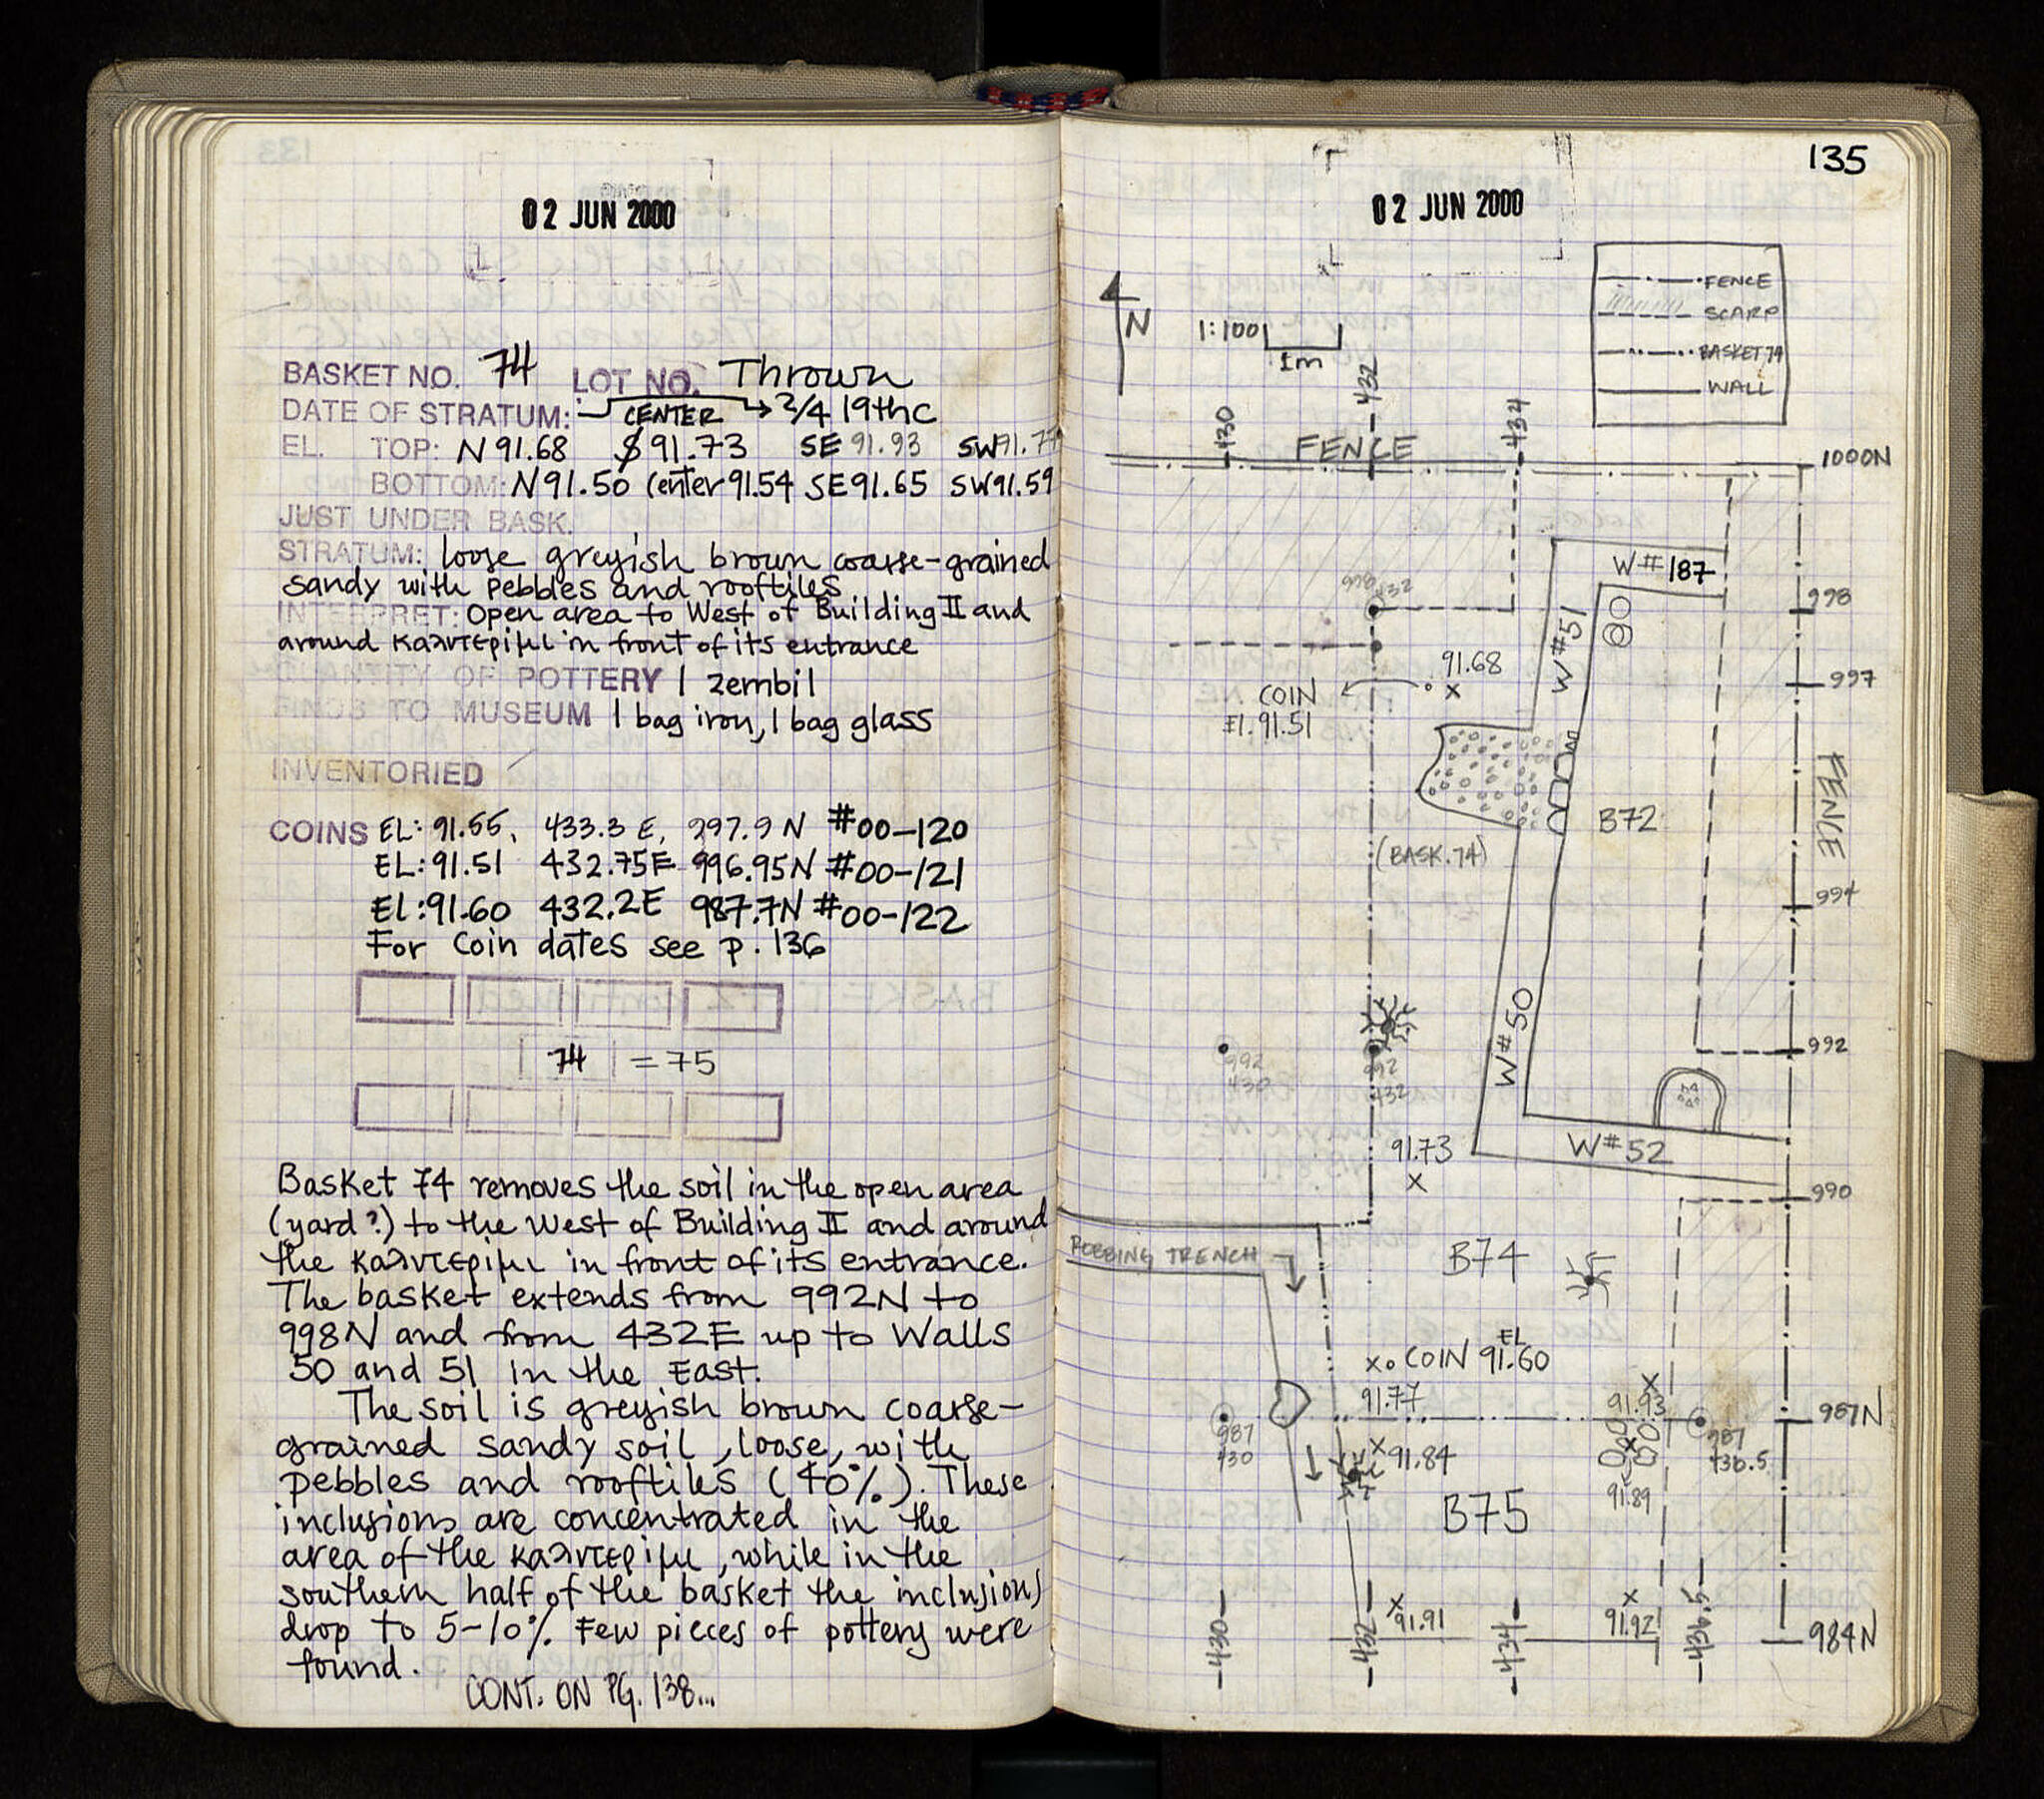 02 JUN 2000
BASKET NO. 74 LOT NO. Thrown
DATE OF STRATUM: CENTER → 2/4 19thc
EL. TOP: N 91.68 S 91.73 SE 91.93 SW 91.77
BOTTOM: N 91.50 Center 91.54 SE 91.65 SW 91.59
JUST UNDER BASK.
STRATUM: loose greyish brown coarse-grained
sandy with pebbles and rooftiles
INTERPRET: Open area to West of Building II and
around καλντερίμι in front of its entrance
QUANTITY OF POTTERY 1 zembil
FINDS TO MUSEUM 1 bag iron, 1 bag glass
INVENTORIED
COINS EL: 91.55, 433.3 E, 997.9 N #00-120
EL: 91.51 432.75E 996.95N #00-121
El: 91.60 432.2E 987.7N #00-122
For Coin dates see p. 136
74 = 75
Basket 74 removes the soil in the open area
(yard?) to the West of Building II and around
the καλντερίμι in front of its entrance.
The basket extends from 992N to
998N and from 432E up to Walls
50 and 51 in the East.
The soil is greyish brown coarse-
grained sandy soil, loose, with
pebbles and rooftiles (40%). These
inclusions are concentrated in the
area of the καλντερίμι, while in the
southern half of the basket the inclusions
drop to 5-10%. Few pieces of pottery were
found.
CONT. ON PG. 138...
135
02 JUN 2000
FENCE
SCARP
BASKET 74
WALL
N
1:100
1m
430
432
434
FENCE
1000N
W#187
998
432
998
W#51
997
91.68
COIN
El. 91.51
FENCE
B72
(BASK. 74)
994
W#50
992
430
992
432
992
91.73
W#52
990
ROBBING TRENCH
B74
EL
COIN 91.60
91.77
91.93
987N
987
430
987
436.5
91.84
91.89
B75
91.91
91.92
984N
430
432
434
436.5